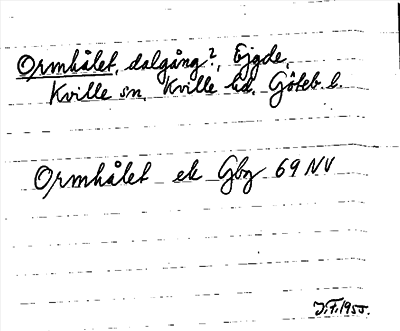 Ormhålet, dalgång?, Ejgde,
Kville sn, Kville hd, Göteb. l.
Ormhålet ek Gbg 69 NV
J.F. 1955.